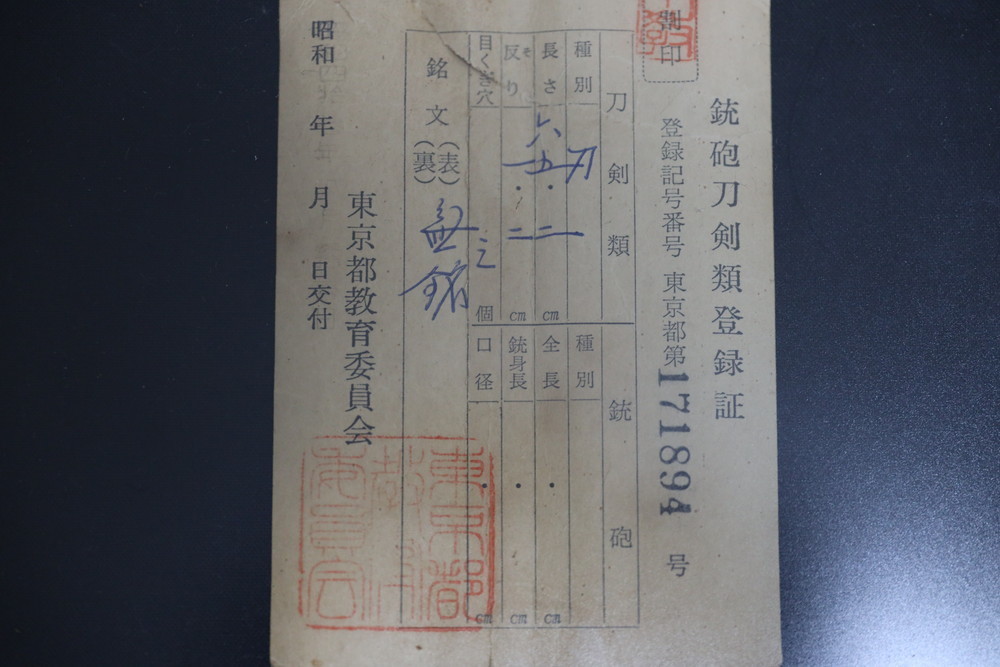 銃砲刀剣類登録証
割印
登録記号番号 東京都第171894号
刀剣類
種別 刀
長さ 六五.二cm
反り そ 一.二cm
目くぎ穴 個
銘文(表)(裏) 無銘
銃砲
種別
全長 . cm
銃身長 . cm
口径 . cm
東京都教育委員会
昭和 年 月 日交付
東京都教育委員会